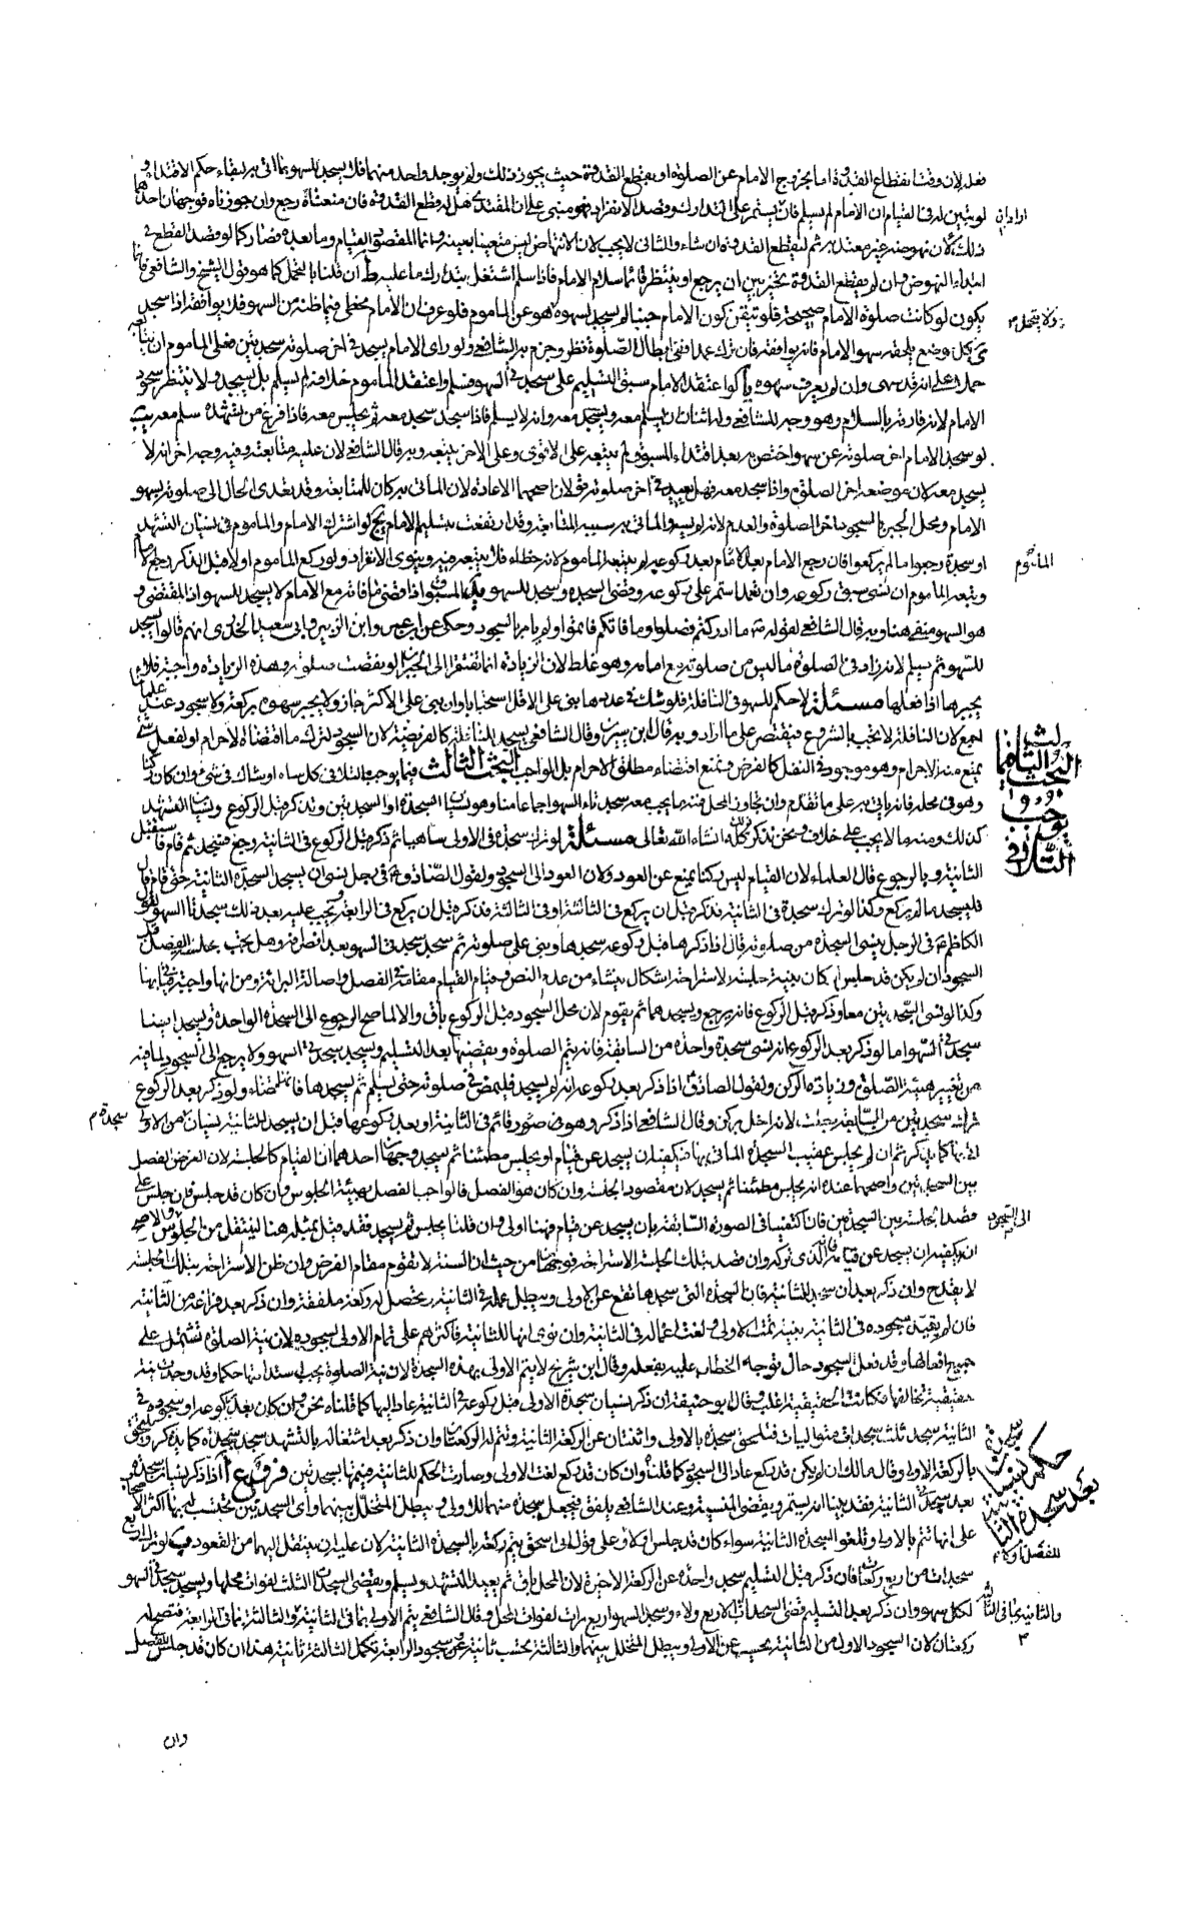 فعله لان وقت انقطاع القدوة اما بخروج الامام عن الصلوة او بقطع القدوة حيث يجوز ذلك ولم يوجد واحد منهما فلا يسجد للسهو بما اتى به لبقاء حكم الاقتداء و
لو تبين له في القيام ان الامام لم يسلم فان يستمر على التدارك وقصد الانفراد فهو مبني على ان المقتدي هل له قطع القدوة فان منعناه رجع وان جوزناه فوجهان احدهما
ابتداء النهوض وان لم يقطع القدوة تخير بين ان يرجع او ينتظر قائما سلام الامام فاذا سلم اشتغل بتدارك ما عليه
يكون لو كانت صلوة الامام صحيحة فلو تيقن كون الامام جنبا لم يسجد لسهوه هو عن الماموم فلو عرف ان الامام مخطئ فيما ظنه من السهو فلا يوافقه اذا سجد
الامام لانه فارقه بالسلام وهو وجه للشافعي
لو سجد الامام اخر صلوته عن سهو اختص به بعد اقتداء المسبوق لم يتبعه على الاقوى وعلى الاخر يتبعه وبه قال الشافعي لان عليه متابعته وفيه وجه اخر انه لا
يسجد معه لان موضعه اخر الصلوة واذا سجد معه فهل يعيد في اخر صلوته قولان اصحهما الاعادة لان الماتي به كان للمتابعة وقد تعدى الخلل الى صلوته بسهو
الامام ومحل الجبر بالسجود اخر الصلوة والعدم لانه لم يسه والماتي به سببه المتابعة وقد ارتفعت بتسليم الامام يج لو اشترك الامام والماموم في نسيان التشهد
او سجدة رجعوا ما لم يركعوا فان رجع الامام بعد ركوعه لم يتبعه الماموم لانه خطاء فلا يتبعه فيه وينوي الانفراد ولو ركع الماموم اولا قبل الذكر رجع الامام
ويتبعه الماموم ان نسي سبق ركوعه وان تعمد استمر على ركوعه وقضى السجدة وسجد للسهو يد المسبوق اذا قضى ما فاته مع الامام لا يسجد للسهو اذ المقتضي
هو السهو منفي هنا وبه قال الشافعي لقوله ع ما ادركتم فصلوا وما فاتكم فاتموا ولم يامر بالسجود وحكى عن ابن عمر وابن الزبير وابي سعيد الخدري انهم قالوا يسجد
للسهو ثم يسلم لانه زاد في الصلوة ما ليس من صلوته مع امامه وهو غلط لان الزيادة انما تفتقر الى الجبران لو نقصت صلوته وهذه الزيادة واجبة فلا
يجبرها اذا فعلها مسئلة لا حكم للسهو في النافلة فلو شك في عددها بنى على الاقل استحبابا وان بنى على الاكثر جاز ولا يجبر سهوه بركعة ولا سجود عند علمائنا
اجمع لان النافلة لا تجب بالشروع فيقتصر على ما اراد وبه قال ابن سيرين وقال الشافعي يسجد للنافلة كالفريضة لان السجود لترك ما اقتضاه الاحرام او لفعل شئ
يمنع منه الاحرام وهو موجود في النفل كالفرض ونمنع اقتضاء مطلق الاحرام بل الواجب البحث الثالث فيما يوجب التلافي كل ساه او شاك في شئ وان كان ركنا
وهو في محله فانه ياتي به على ما تقدم وان تجاوز المحل فمنه ما يجب معه سجدتا السهو اجماعا منا وهو نسيان السجدة او السجدتين وتذكر قبل الركوع ونسيان التشهد
كذلك ومنه ما لا يجب على خلاف ونحن نذكر ذلك كله انشاء الله تعالى مسئلة لو ترك سجدة في الاولى ساهيا ثم ذكر قبل الركوع في الثانية رجع فسجد ثم قام فاستقبل
الثانية وبالرجوع قال العلماء لان القيام ليس ركنا يمنع عن العود ولان العود الى السجود ولقول الصادق ع في رجل نسي ان يسجد السجدة الثانية حتى قام قال
فليسجد ما لم يركع وكذا لو ترك سجدة في الثانية فذكر قبل ان يركع في الثالثة او في الثالثة فذكره قبل ان يركع في الرابعة ويجب عليه بعد ذلك سجدتا السهو لقول
الكاظم ع في الرجل ينسى السجدة من صلوته قال اذا ذكرها قبل ركوعه سجدها وبنى على صلوته ثم سجد سجدتي السهو بعد انصرافه وهل يجب جلسة الفصل قبل
السجود ان لم يكن قد جلس او كان بنية جلسة الاستراحة اشكال ينشاء من عدم النص وقيام القيام مقامه في الفصل واصالة البرائة ومن انها واجبة فياتي بها
وكذا لو نسي السجدتين معا وذكر قبل الركوع فانه يرجع ويسجدهما ثم يقوم لان محل السجود قبل الركوع باق والا لما صح الرجوع الى السجدة الواحدة ويسجد ايضا
سجدتي السهو اما لو ذكر بعد الركوع انه نسي سجدة واحدة من السابقة فانه يتم الصلوة ويقضيها بعد التسليم ويسجد سجدتي السهو ولا يرجع الى السجود لما فيه
من تغيير هيئة الصلوة وزيادة الركن ولقول الصادق ع اذا ذكر بعد ركوعه انه لم يسجد فليمض في صلوته حتى يسلم ثم يسجدها فانها قضاء ولو ذكر بعد الركوع
ترك سجدتين من السابقة بطلت لانه اخل بركن وقال الشافعي اذا ذكر وهو قائم في الثانية او بعد ركوعها قبل ان يسجد للثانية نسيان سجدة من الاولى
اتى بها كما يذكر ثم ان لم يجلس عقيب السجدة الماتي بها فيكفيه ان يسجد عن قيام او يجلس مطمئنا ثم يسجد وجهان احدهما ان القيام كالجلسة لان الغرض الفصل
بين السجدتين واصحهما عنده انه يجلس مطمئنا ثم يسجد لان مقصود الجلسة وان كان هو الفصل فالواجب الفصل بهيئة الجلوس وان كان قد جلس فان جلس على
قصد الجلسة بين السجدتين فان اكتفينا في الصورة السابقة بان يسجد عن قيام فهنا اولى وان قلنا يجلس ثم يسجد فقد قيل بمثله هنا لينتقل من الجلوس الى السجود والاصح
انه يكفيه ان يسجد عن قيامه الذي تركه وان قصد بتلك الجلسة الاستراحة فوجهان من حيث ان السنة لا تقوم مقام الفرض وان ظن الاستراحة بتلك الجلسة
لا يقدح وان ذكر بعد ان سجد للثانية فان السجدة التي سجدها تقع عن الاولى ويبطل عمله في الثانية ويحصل له ركعة ملفقة وان ذكر بعد فراغه من الثانية
فان لم يقيد سجوده في الثانية بنية تمت الاولى ولغت اعماله في الثانية وان نوى انها للثانية فاكثرهم على تمام الاولى بسجوده لان نية الصلوة تشتمل على
جميع افعالها وقد فعل السجود حال توجه الخطاب عليه بفعله وقال ابن شريح لا يتم الاولى بهذه السجدة لان نية الصلوة يجب استدامتها حكما وقد وجدت نية
حقيقية تخالفها فكانت الحقيقية اغلب وقال ابو حنيفة ان ذكر نسيان سجدة الاولى قبل ركوعه في الثانية عاد اليها كما قلناه نحن وان كان بعد ركوعه او سجوده في
الثانية سجد ثلث سجدات متواليات فتلحق سجدة بالاولى واثنتان عن الركعة الثانية وتتم له الركعتان وان ذكر بعد اشتغاله بالتشهد سجد سجدة كما يذكر وتلحق
بالركعة الاولى وقال مالك ان لم يكن قد ركع عاد الى السجود كما قلناه وان كان قد ركع لغت الاولى وصارت الحكم للثانية فيتمها بسجدتين فروع ا اذا ذكر نسيان سجدة
بعد سجدتي الثانية فقد بينا انه يستمر ويقضي المنسية وعند الشافعي يلفق فتجعل سجدة منهما للاولى ويبطل المتخلل بينهما واي السجدتين تحتسب بها اكثر الاصحاب
على انها تتم بالاولى وتلغو السجدة الثانية سواء كان قد جلس اولا وعلى قول ابي اسحق يتم ركعة بالسجدة الثانية لان عليه ان ينتقل اليها من القعود ب لو ترك اربع
سجدات من اربع ركعات فان ذكر قبل التسليم سجد واحدة عن الركعة الاخيرة لان المحل باق ثم يعيد التشهد ويسلم ويقضي السجدات الثلث لفوات محلها ويسجد سجدتي السهو
لكل سهو وان ذكر بعد التسليم قضى السجدات الاربع ولاء وسجد للسهو اربع مرات لفوات المحل وقال الشافعي يتم الاولى بما في الثانية والثالثة بما في الرابعة فتصح له
ركعتان لان السجود الاول من الثانية يحسب عن الاولى ويبطل المتخلل بينهما والثالثة تحسب ثانية ومن سجود الرابعة تكمل الثالثة ثانية هذا ان كان قد جلس للفصل
ولا يتحمل
الماموم
البحث الثالث فيما يوجب التلافي
سجدة م
الى السجود
حكم نسيان سجدة بعد سجدة الثانية
للفصل اولا م
والثانية بما في الثالثة
وان